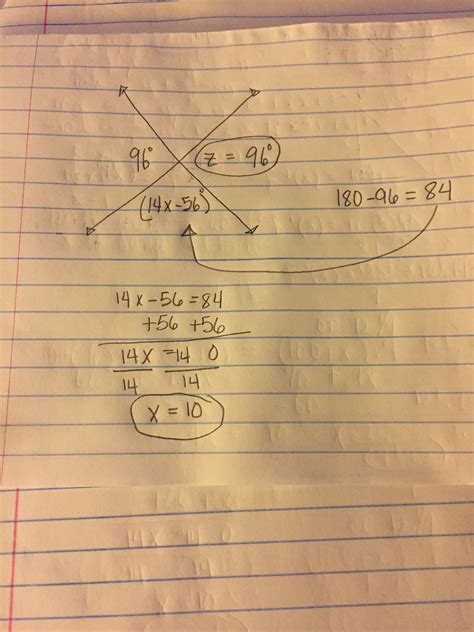 96° z = 96°
(14x-56°)
180-96 = 84
14x-56 = 84
+56 +56
14x = 14 0
14 14
x = 10